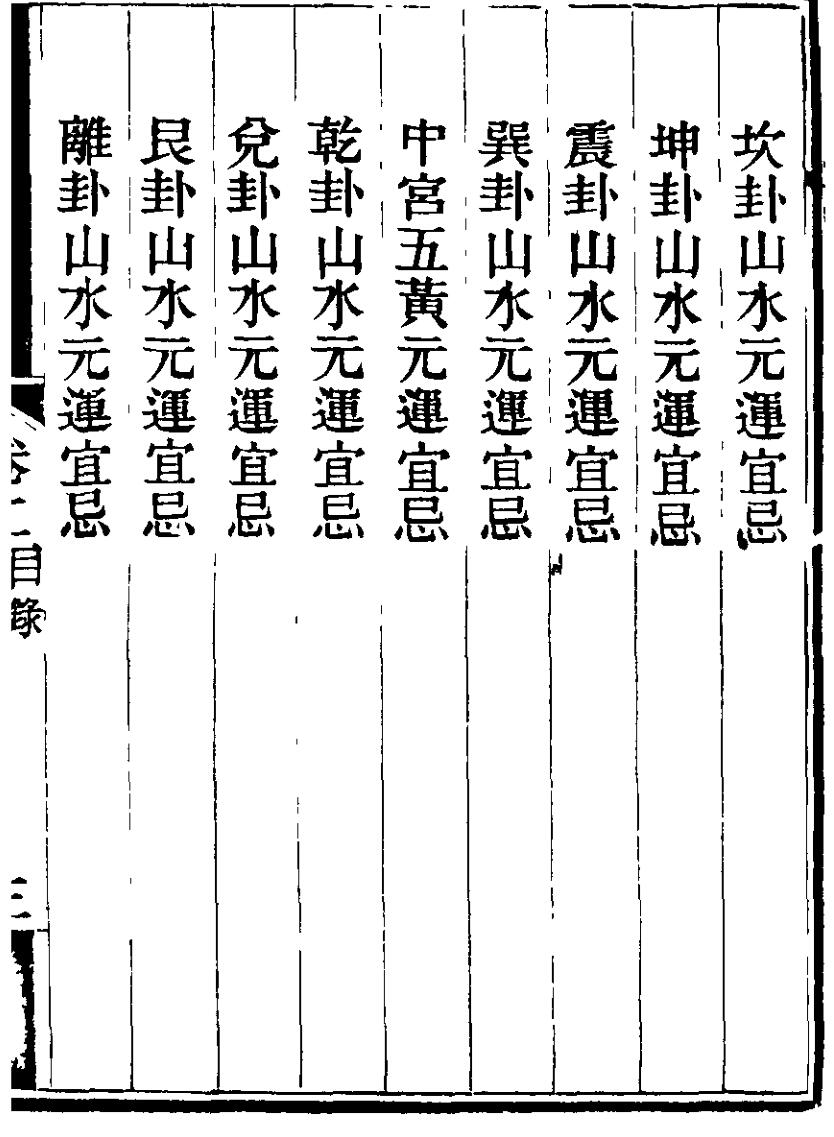 坎卦山水元運宜忌
坤卦山水元運宜忌
震卦山水元運宜忌
巽卦山水元運宜忌
中宮五黃元運宜忌
乾卦山水元運宜忌
兌卦山水元運宜忌
艮卦山水元運宜忌
離卦山水元運宜忌
目錄